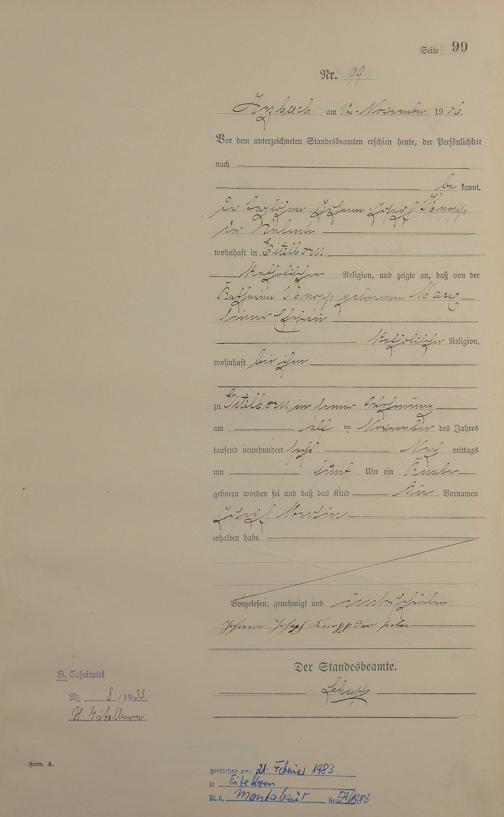 Seite 99
Nr. 99
Arzbach am 12. November 1906.
Vor dem unterzeichneten Standesbeamten erschien heute, der Persönlichkeit
nach
be kannt,
der Taglöhner Johann Josef Knopp
der
wohnhaft in Eitelborn
katholischer Religion, und zeigte an, daß von der
Katharina Knopp geborenen Marx
seiner Ehefrau
katholischer Religion,
wohnhaft bei ihm
zu Eitelborn in seiner Wohnung
am elf ten November des Jahres
tausend neunhundert sechs Nach mittags
um fünf Uhr ein Knabe
geboren worden sei und daß das Kind die Vornamen
Josef Martin
erhalten habe.
Vorgelesen, genehmigt und unterschrieben
Johann Joseph Knopp der
Der Standesbeamte.
H. Geheiratet
Nr. 8 / 1933
Eitelborn
Form. A.
gestorben am: 21. Februar 1983
in Eitelborn
St. A. Montabaur Nr. 59/1983